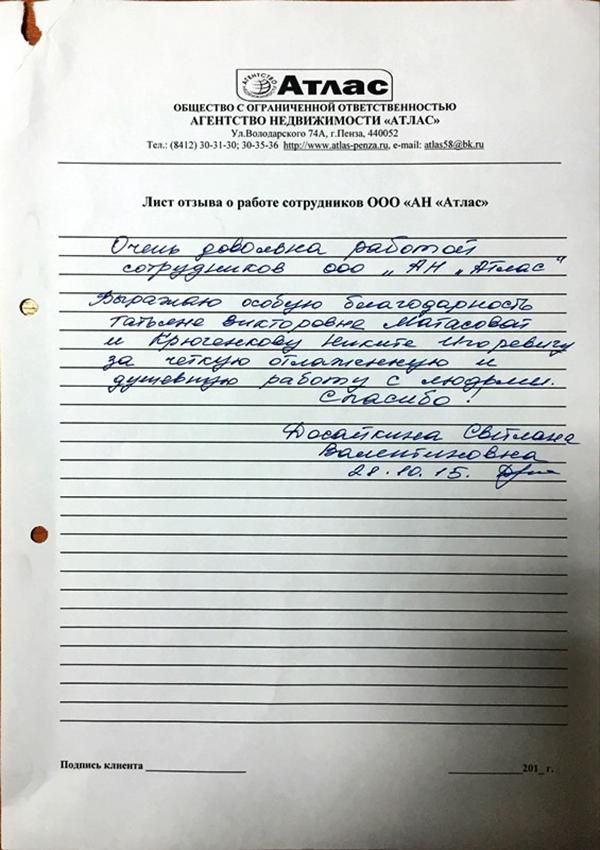 АГЕНТСТВО
Атлас
ОБЩЕСТВО С ОГРАНИЧЕННОЙ ОТВЕТСТВЕННОСТЬЮ
АГЕНТСТВО НЕДВИЖИМОСТИ «АТЛАС»
Ул.Володарского 74А, г.Пенза, 440052
Тел.: (8412) 30-31-30; 30-35-36 http://www.atlas-penza.ru, e-mail: atlas58@bk.ru
Лист отзыва о работе сотрудников ООО «АН «Атлас»
Очень довольна работой
сотрудников ооо „АН „Атлас"
Выражаю особую благодарность
Татьяне Викторовне
и Крюченкову Никите Игоревичу
за чёткую отлаженную и
душевную работу с людьми.
Спасибо!
Досайкина Светлана
Валентиновна
28.10.15.
Подпись клиента ________________ ____________201_ г.